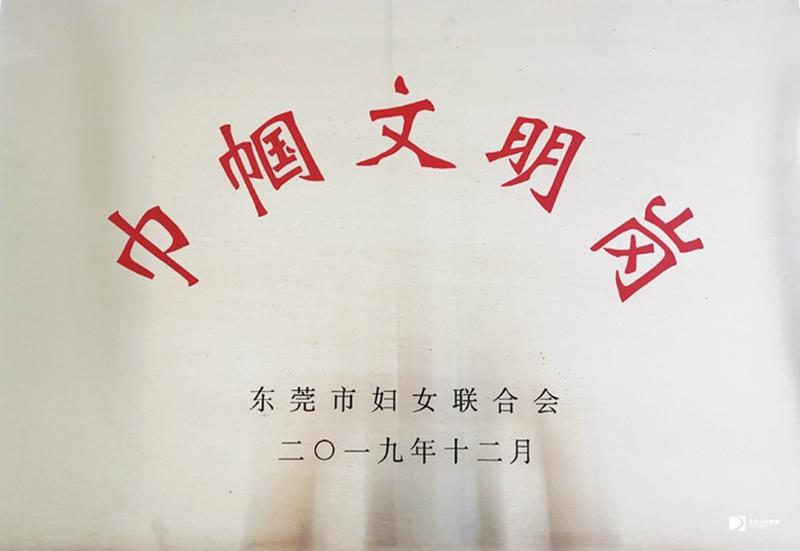 巾帼文明岗
东莞市妇女联合会
二〇一九年十二月